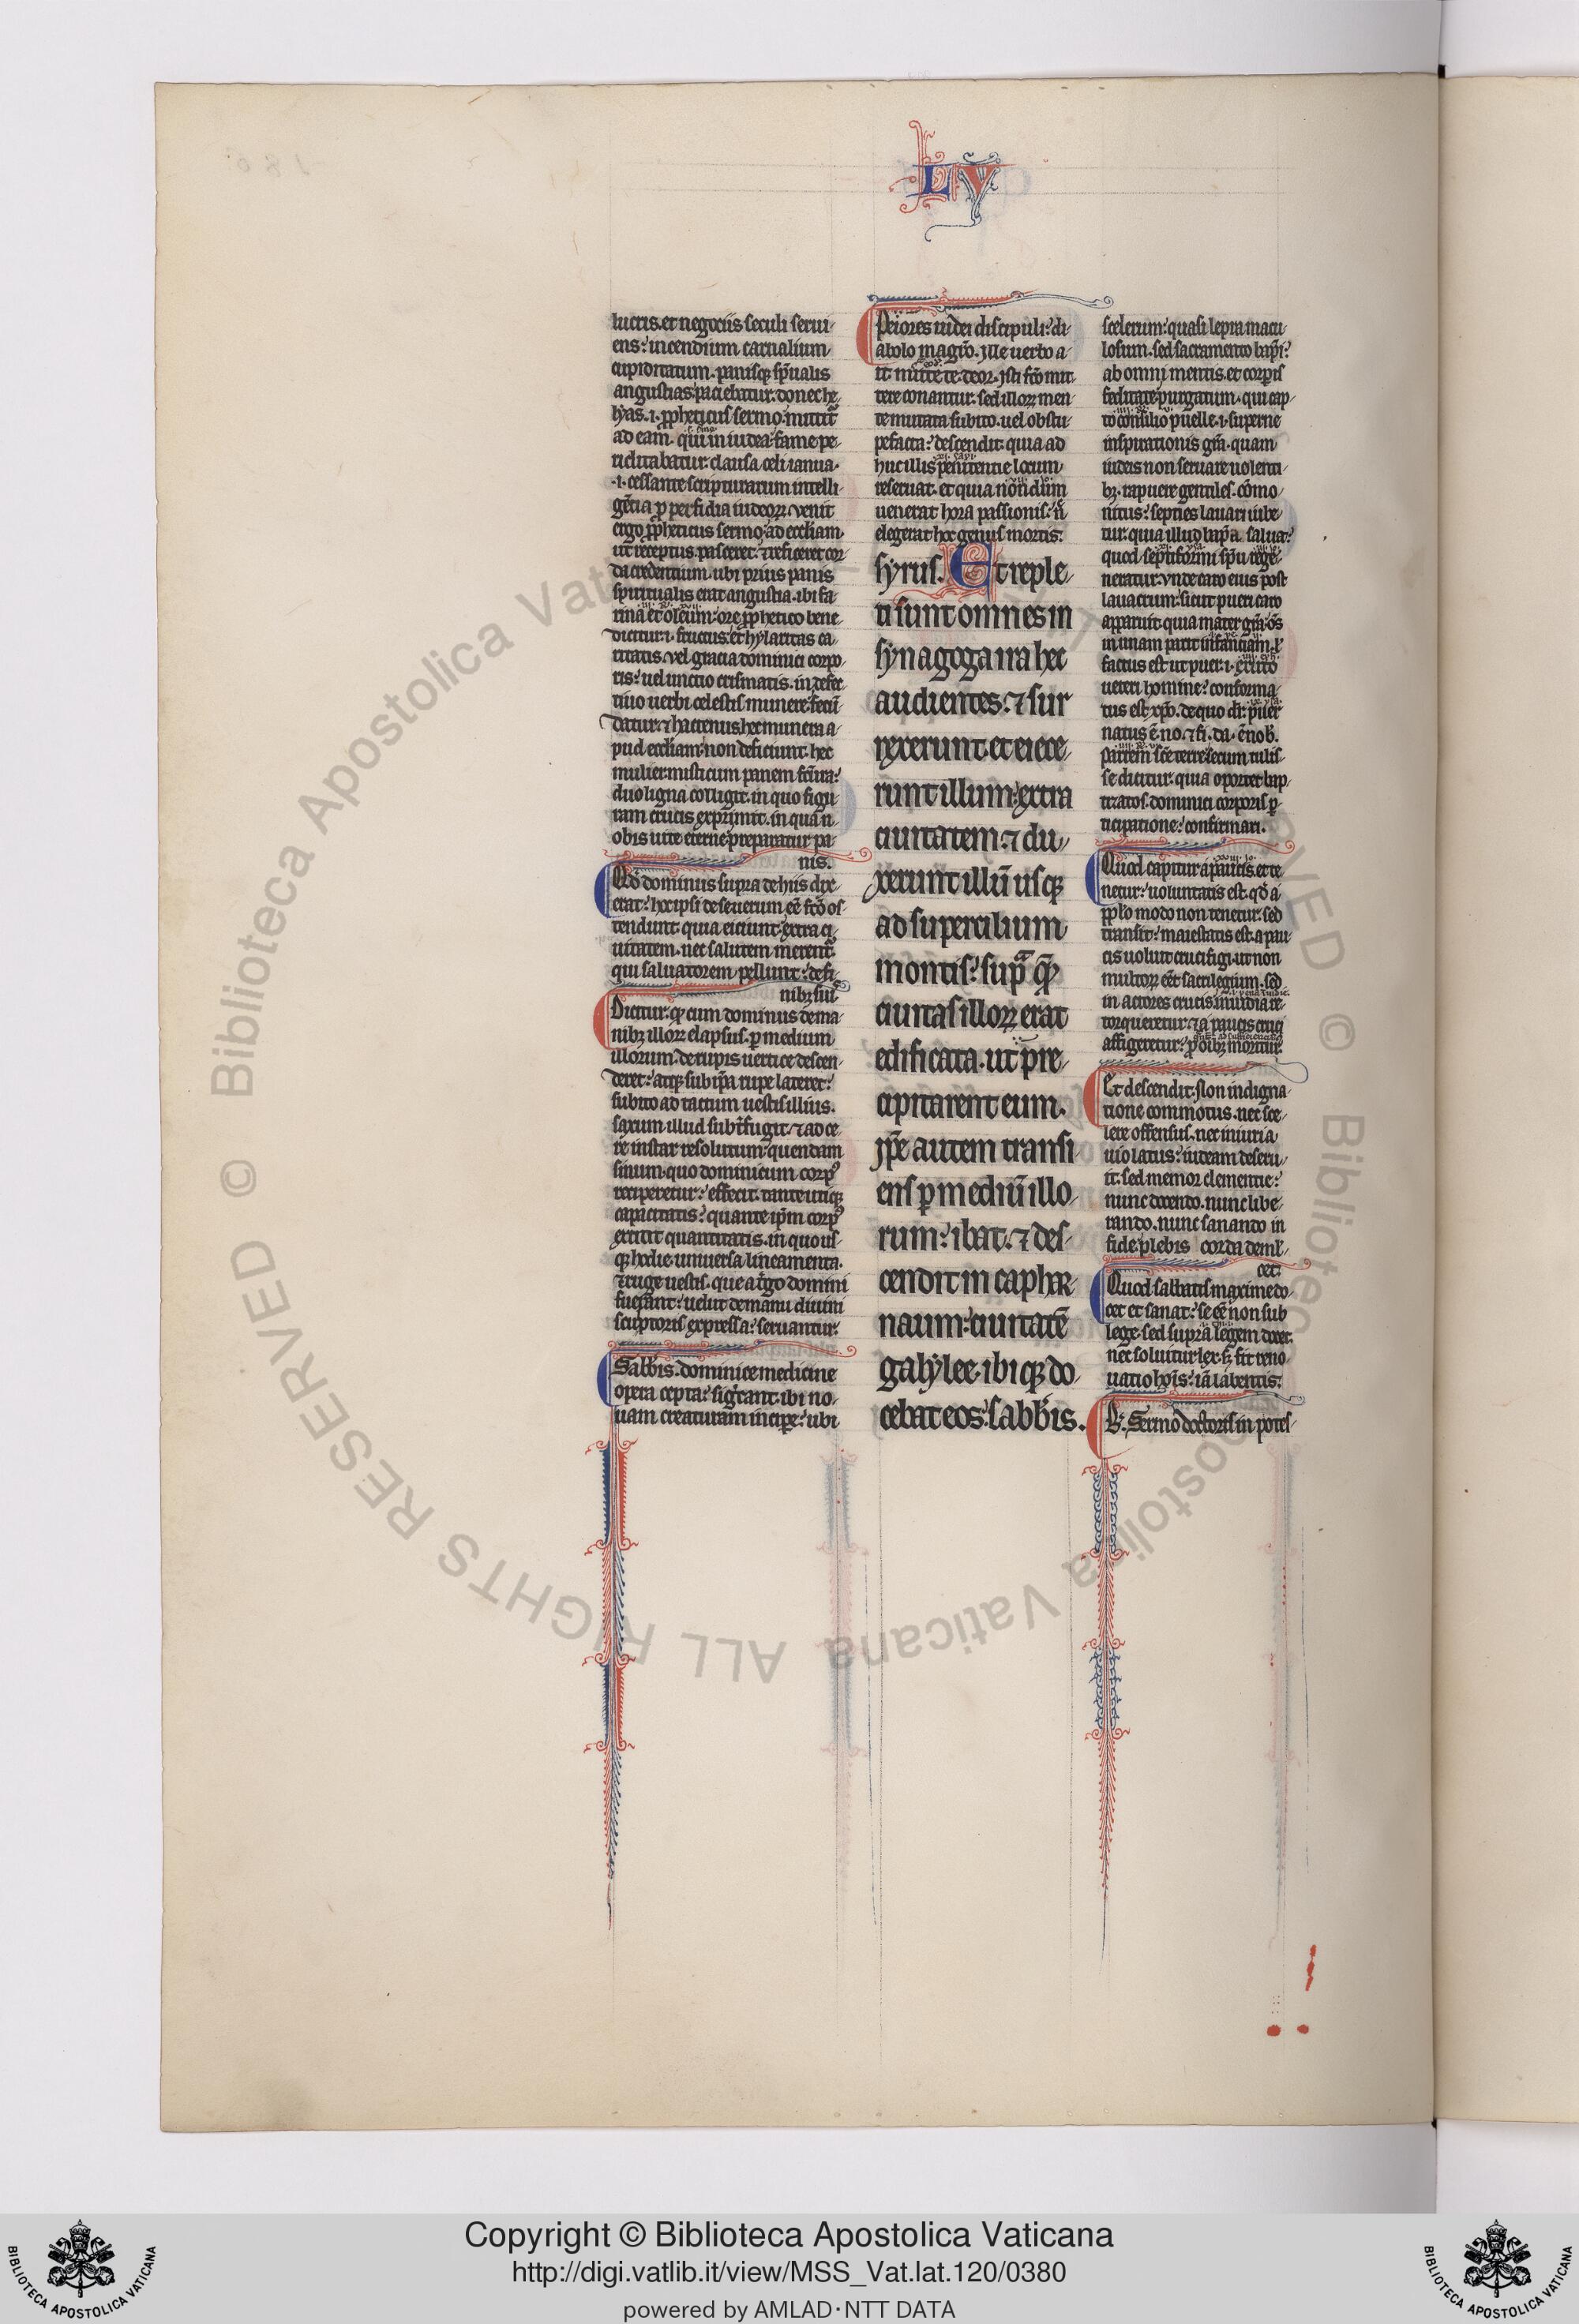 LV
lucris. et negociis seculi serui-
ens: incendium carnalium
cupiditatum. panisq; sp̄ualis
angustias paciebatur. donec he-
lyas .i. ꝓpheticus sermo: mittit̄
ad eam. qui in iudea: fame pe-
riclitabatur. clausa celi ianua.
.i. cessante scripturarum intelli-
gētia ꝓ perfidia iudeoꝝ. venit
ergo ꝓpheticus sermo: ad eccl̄iam
ut receptus. pasceret: ⁊ reficeret cor-
da credentium. ubi prius panis
spiritualis erat angustia. ibi fa-
rina et oleum: ore ꝓphetico bene-
dicitur .i. fructus: et hylaritas ca-
ritatis. vel gracia dominici corpo-
ris: uel unctio crismatis. indefec-
tiuo uerbi celestis munere: fecū-
datur. ⁊ hactenus hec munera a-
pud eccl̄iam: non deficiunt. hec
mulier misticum panem fc̄ura:
duo ligna colligit. in quo figu-
ram crucis exprimit. in qua n-
obis uite eterne preparatur pa-
nis.
Qd̄ dominus supra de hiis dixe-
erat: hoc ipsi de se uerum eē fc̄o os-
tendunt. quia eiciunt extra ci-
uitatem. nec salutem merent̄
qui saluatorem pellunt: de fi-
nibꝫ suis
Dicitur. qꝫ cum dominus de ma-
nibꝫ illoꝝ elapsus. ꝑ medium
illorum: de rupis uertice descen-
deret: atqꝫ sub ip̄a rupe lateret:
subito ad tactum uestis illius.
saxum illud subt̄fugit. ⁊ ad ce-
re instar resolutum: quendam
sinum. quo dominicum corpꝰ
reciperetur: effecit. tante utiqꝫ
capacitatis: quante ip̄m corpꝰ
extitit quantitatis. in quo us-
qꝫ hodie. uniuersa lineamenta.
⁊ ruge uestis. que a t̄go domini
fuerant: uelut de manu diuini
sculptoris expressa: seruantur.
Sabb̄is. dominice medicine
opera cepta: sigt̄cant. ibi no-
uam creaturam incipe: ubi
Peiores iudei discipuli: di-
abolo magr̄o. Ille uerbo a-
it mitte te deor. Isti fc̄o mit-
tere conantur. sed illoꝝ men-
te mutata subito. uel obstu-
pefacta: descendit. quia ad
huc illis penitentie locum
reseruat. et quia nondum
uenerat hora passionis: n̄
elegerat hoc genus mortis.
syrus. Et reple-
ti sunt omnes in
synagoga ira hec
audientes. ⁊ sur
rexerunt et eiece-
runt illum: extra
ciuitatem. ⁊ du-
xerunt illū usqꝫ
ad supercilium
montis: sup̄ qđ
ciuitas illoꝝ erat
edificata. ut pre-
cipitarent eum.
Ip̄e autem transi-
ens ꝑ mediū illo-
rum: ibat. ⁊ des-
cendit in caphar-
naum: ciuitatē
galylee. ibiqꝫ do-
cebat eos: sabb̄is.
scelerum: quasi lepra macu-
losum. sed sacramento bap̄i:
ab omni mentis. et corꝑis
feditate purgatum. qui cap-
to consilio puelle .i. superne
inspirationis gr̄a. quam
iudeis non seruare uolenti-
bꝫ. rapuere gentiles. cōmo-
nitus: septies lauari iube-
tur. quia illud bap̄a. saluat:
quod septiformi sp̄u rege-
neratur. vnde caro eius post
lauacrum: sicut pueri caro
apparuit. quia mater gr̄a: ōs
in unam parit infantiam. ł
factus est ut puer .i. exuto
ueteri homine: conforma-
tus est xp̄o. de quo dr̄: puer
natus ē no. ⁊ fi. da. ē nob̄.
partem sc̄e terre: secum tulis-
se dicitur. quia oportet bap-
tizatos. dominici corporis ꝑ-
ticipatione: confirmari.
Quod capitur a paucis. et te-
netur: uoluntatis est. qđ a
pplo modo non tenetur. sed
transit: maiestatis est. a pau-
cis uoluit crucifigi. ut non
multoꝝ eēt sacrilegium. sed
in actores crucis inuidia re-
torqueretur. ⁊ a paucis cruci
affigeretur: ꝓ oībꝫ moritur.
Et descendit. Non indigna-
tione commotus. nec sce-
lere offensus. nec iniuria
uiolatus: iudeam deseru-
it. sed memor clementie:
nunc docendo. nunc libe-
rando. nunc sanando in
fide plebis corda demł-
cet.
Quod sabbatis maxime do-
cet et sanat: se eē non sub
lege. sed supra legem docet.
nec soluitur lex. s; fit reno-
uatio hōis: iā labentis.
B. Sermo doctoris in potes-
Copyright © Biblioteca Apostolica Vaticana
http://digi.vatlib.it/view/MSS_Vat.lat.120/0380
powered by AMLAD·NTT DATA